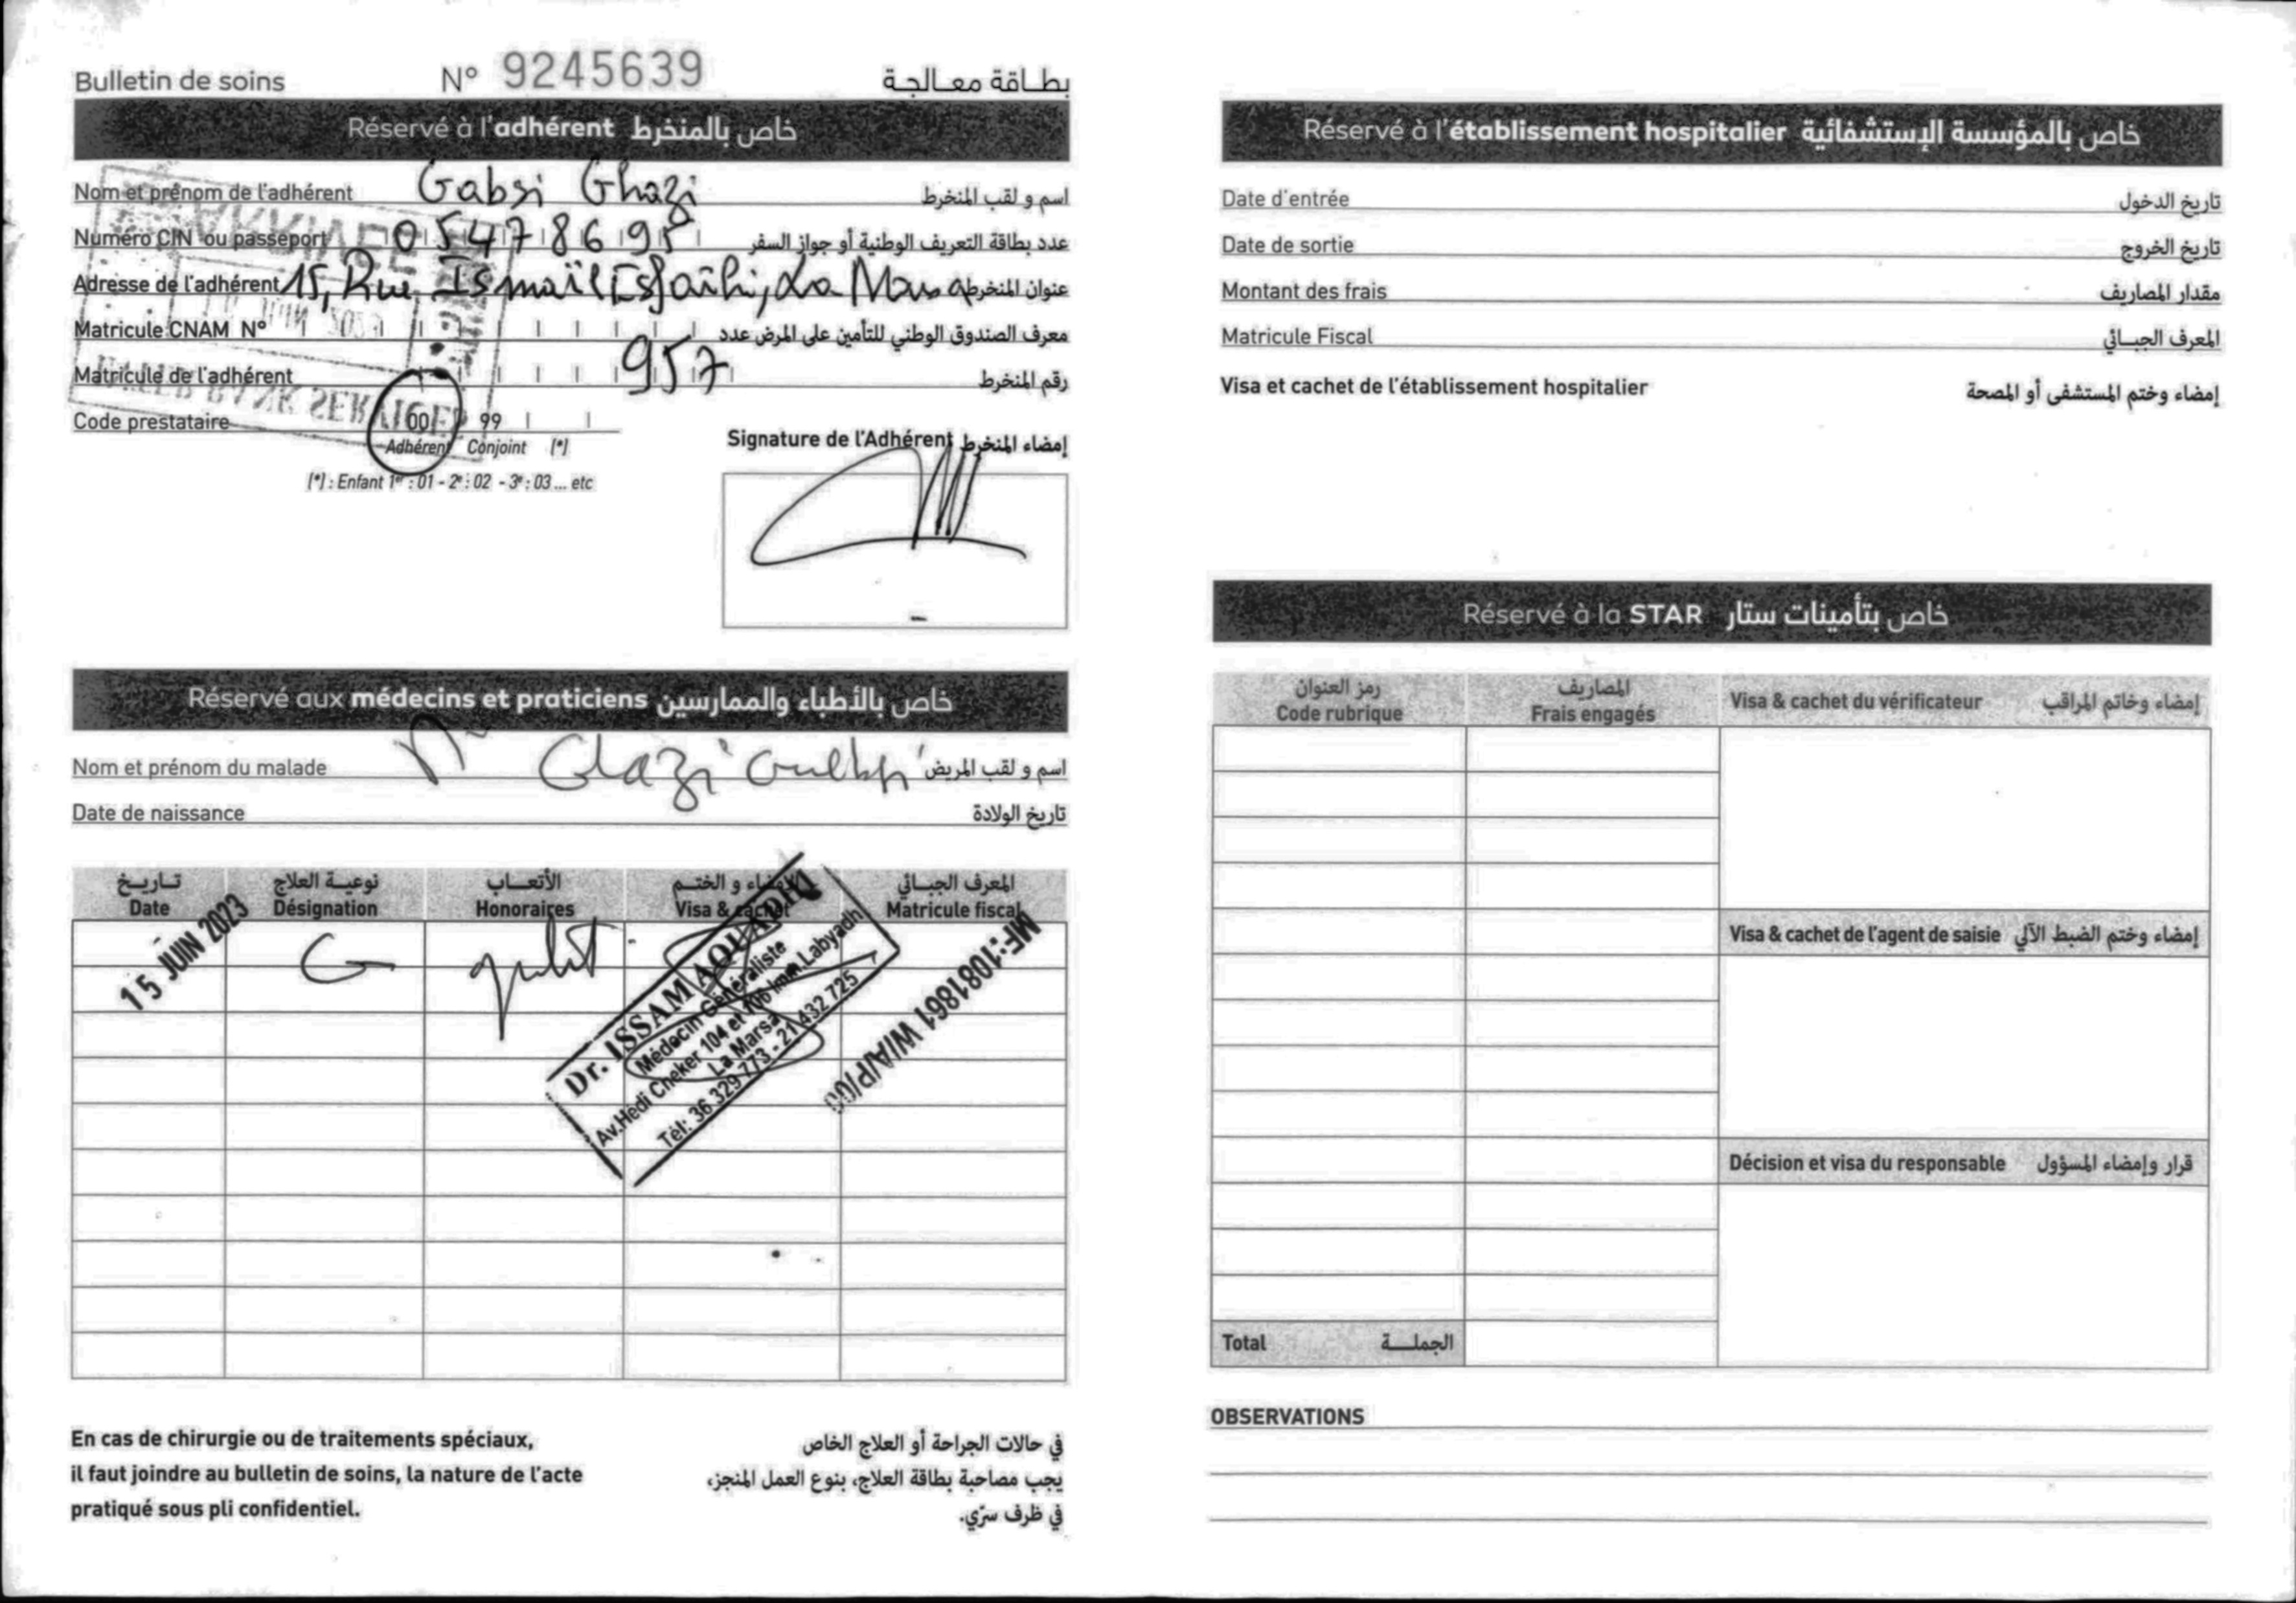 Bulletin de soins N° 9245639 بطاقة معالجة
Réservé à l'adhérent خاص بالمنخرط
Nom et prénom de l'adhérent Gabsi Ghazi اسم و لقب المنخرط
Numéro CIN ou passeport 05478695 عدد بطاقة التعريف الوطنية أو جواز السفر
Adresse de l'adhérent 15, Rue Ismaïl La عنوان المنخرط
Matricule CNAM N° معرف الصندوق الوطني للتأمين على المرض عدد
Matricule de l'adhérent 957 رقم المنخرط
Code prestataire 00 99
Adhérent Conjoint (*)
(*) : Enfant 1er : 01 - 2e : 02 - 3e : 03 ... etc
Signature de l'Adhérent إمضاء المنخرط
Réservé aux médecins et praticiens خاص بالأطباء والممارسين
Nom et prénom du malade اسم و لقب المريض
Date de naissance تاريخ الولادة
تاريخ نوعية العلاج الأتعاب الإمضاء و الختم المعرف الجبائي
Date Désignation Honoraires Visa & cachet Matricule fiscal
15 JUIN 2023
Dr. ISSAM AOUADHI
Médecin Généraliste
Av.Hédi Cheker 104 et 106 Imm Labyadh
La Marsa
Tél: 36 329 773 - 21 432 725
MF:1081861 W/A/P/000
En cas de chirurgie ou de traitements spéciaux,
il faut joindre au bulletin de soins, la nature de l'acte
pratiqué sous pli confidentiel.
في حالات الجراحة أو العلاج الخاص
يجب مصاحبة بطاقة العلاج، بنوع العمل المنجز،
في ظرف سرّي.
Réservé à l'établissement hospitalier خاص بالمؤسسة الإستشفائية
Date d'entrée تاريخ الدخول
Date de sortie تاريخ الخروج
Montant des frais مقدار المصاريف
Matricule Fiscal المعرف الجبائي
Visa et cachet de l'établissement hospitalier إمضاء وختم المستشفى أو المصحة
Réservé à la STAR خاص بتأمينات ستار
رمز العنوان المصاريف
Code rubrique Frais engagés Visa & cachet du vérificateur إمضاء وخاتم المراقب
Visa & cachet de l'agent de saisie إمضاء وختم الضبط الآلي
Décision et visa du responsable قرار وإمضاء المسؤول
Total الجملة
OBSERVATIONS